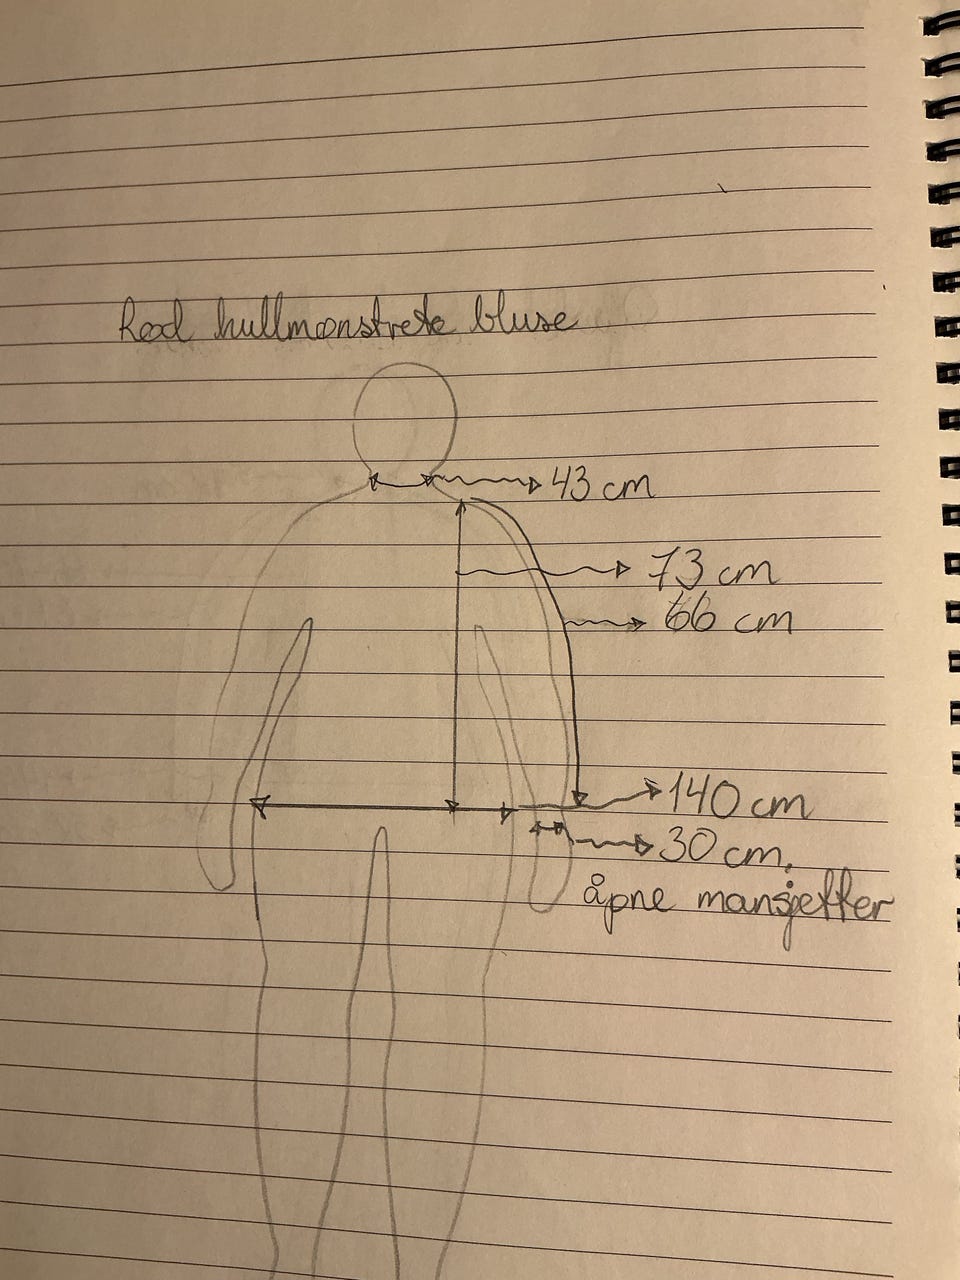 Rød hullmønstrete bluse
43 cm
73 cm
66 cm
140 cm
30 cm,
åpne mansjetter